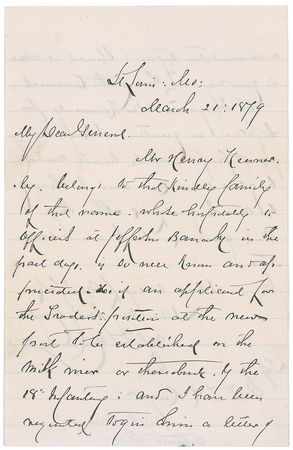 St Louis. Mo:
March 21: 1879
My Dear General.
Mr Henry Kenner-
ly. belongs to that Kinder family
of that name. whose hospitality to
officers at Jefferson Barracks in the
past days. is so near known and ap
preciated. is an applicant for
the Trader's position at the new
post to be established on the
Milk river or thereabouts. by the
18th Infantry: and I have been
requested to give him a letter of